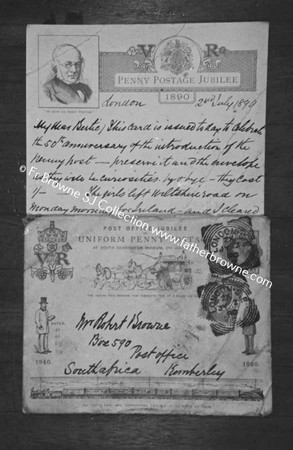 V R
PENNY POSTAGE JUBILEE
1890
London 2nd July 1890
My dear Bertie/ This card is issued to day to celebrate
the 50th anniversary of the introduction of the
Penny post — preserve it and the envelope
as they will be curiosities by & bye — they cost
1/- The girls left Wiltshire road on
Monday morning for Ireland — and I
© Fr Browne S.J. Collection www.fatherbrowne.com
POST OFFICE JUBILEE
UNIFORM PENNY POSTAGE
AT SOUTH KENSINGTON MUSEUM
V R
Mr Robert Browne
Box 590
Post office
South africa Kimberley
1840 1890